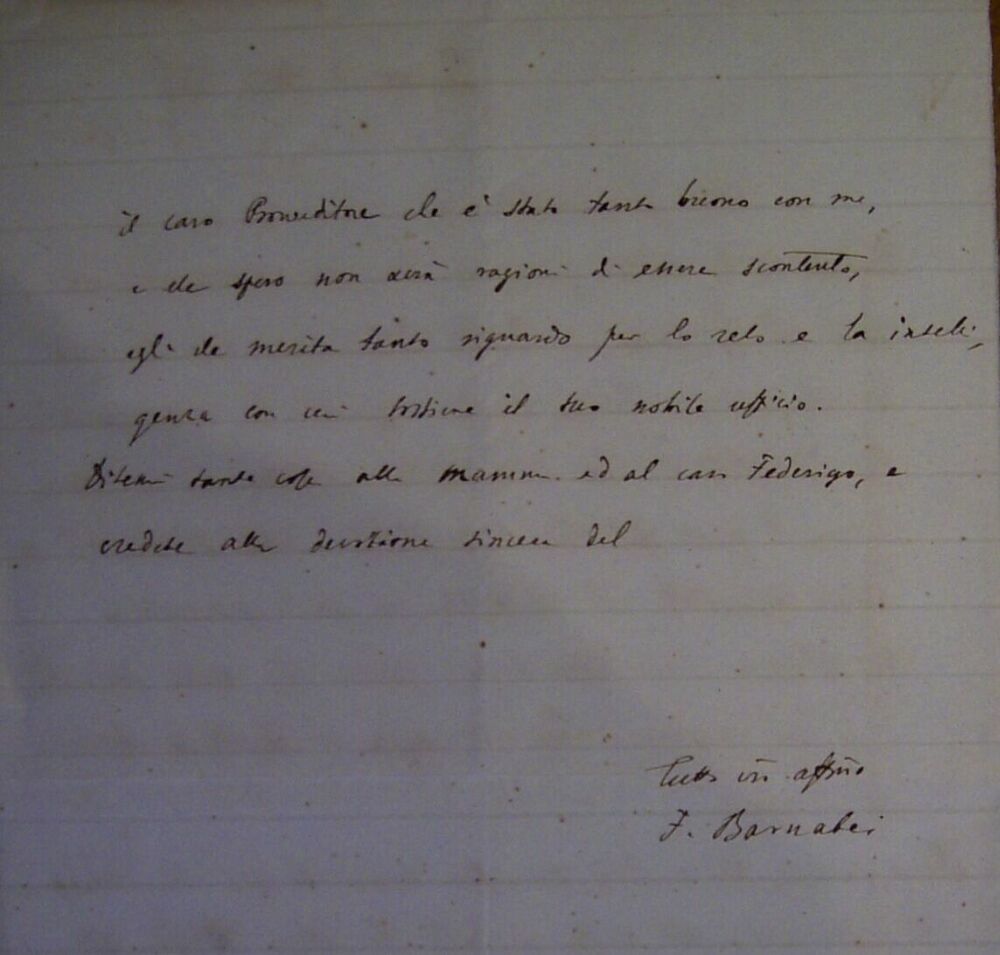 il caro Provveditore che è stato tanto buono con me,
e che spero non avrà ragioni di essere scontento,
egli che merita tanto riguardo per lo zelo e la inteli,
genza con cui sostiene il suo nobile ufficio.
Ditemi tante cose alla mamma ed al caro Federigo, e
credete alla devozione sincera del
Tutto vro affmo
F. Barnabei